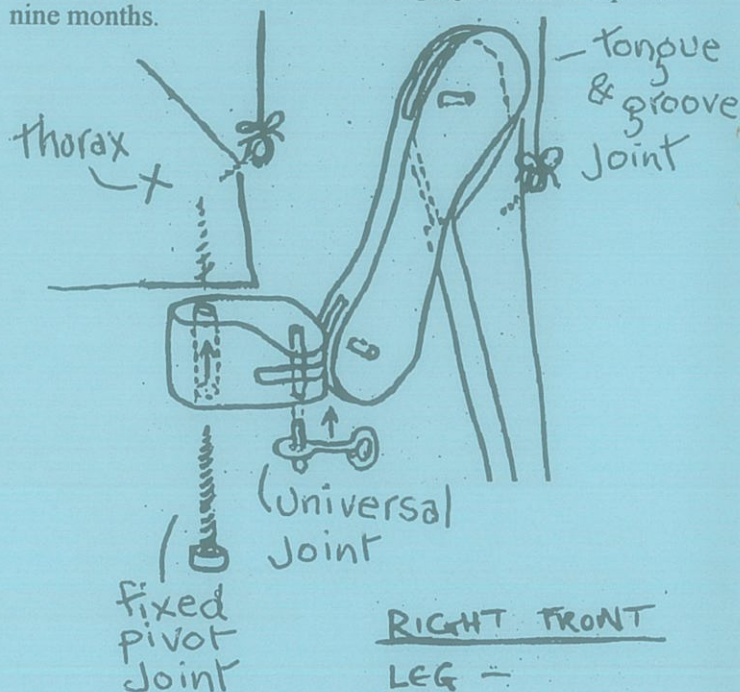 nine months.
tongue
& groove
Joint
thorax
X
Universal
Joint
fixed
pivot
Joint
RIGHT FRONT
LEG –